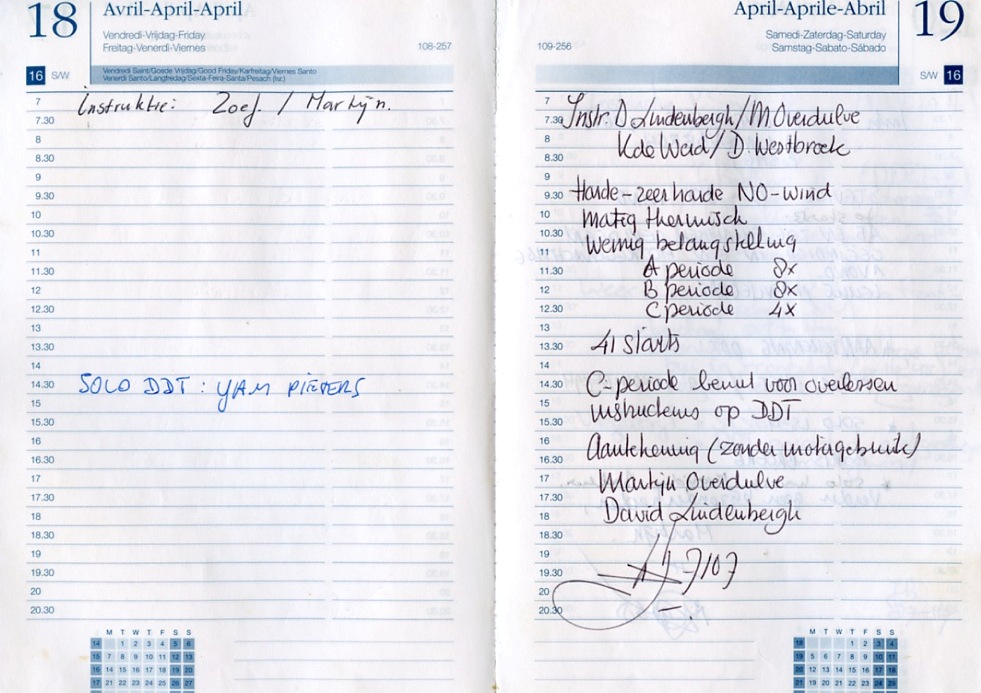 18
Avril-April-April
Vendredi-Vrijdag-Friday
Freitag-Venerdì-Viernes
108-257
16 S/W
Vendredi Saint/Goede Vrijdag/Good Friday/Karfreitag/Viernes Santo
Venerdì Santo/Langfredag/Sexta-Feira-Santa/Pesach (Isr.)
7 Instruktie: Zoef. / Martijn.
7.30
8
8.30
9
9.30
10
10.30
11
11.30
12
12.30
13
13.30
14
14.30 SOLO DDT : YAM PIETERS
15
15.30
16
16.30
17
17.30
18
18.30
19
19.30
20
20.30
M T W T F S S
14 1 2 3 4 5 6
15 7 8 9 10 11 12 13
16 14 15 16 17 18 19 20
17 21 22 23 24 25 26 27
April-Aprile-Abril
19
Samedi-Zaterdag-Saturday
Samstag-Sabato-Sábado
109-256
S/W 16
7
7.30 Instr. D Lindenbergh/M Overdulve
8 K de Werd/D. Westbroek
8.30
9
9.30 Harde-zeer harde NO-wind
10 Matig thermisch
10.30
11 Weinig belangstelling
11.30 A periode 8x
12 B periode 8x
12.30 C periode 4x
13
13.30 41 starts
14
14.30 C-periode benut voor overlessen
15 instructeurs op DDT
15.30
16 Aantekening (zonder motorgebruik)
16.30
17 Martijn Overdulve
17.30
18 David Lindenbergh
18.30
19
19.30 7107
20
20.30
M T W T F S S
18 1 2 3 4
19 5 6 7 8 9 10 11
20 12 13 14 15 16 17 18
21 19 20 21 22 23 24 25